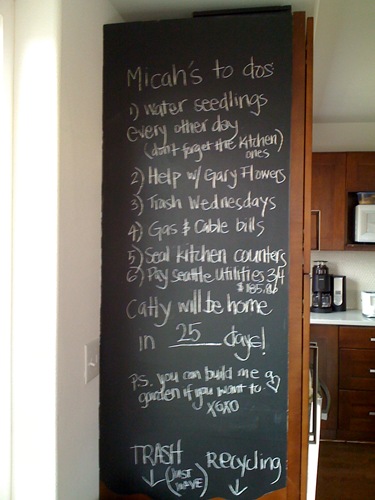 Micah's to dos
1) water seedlings
every other day
(don't forget the kitchen
ones)
2) Help w/ Gary Flowers
3) Trash Wednesdays
4) Gas & Cable bills
5) Seal kitchen counters
6) Pay Seattle Utilities 3/4
will be home
in 25 days!
P.S. you can build me a
garden if you want to
XOXO
TRASH Recycling
(JUST
WAVE)